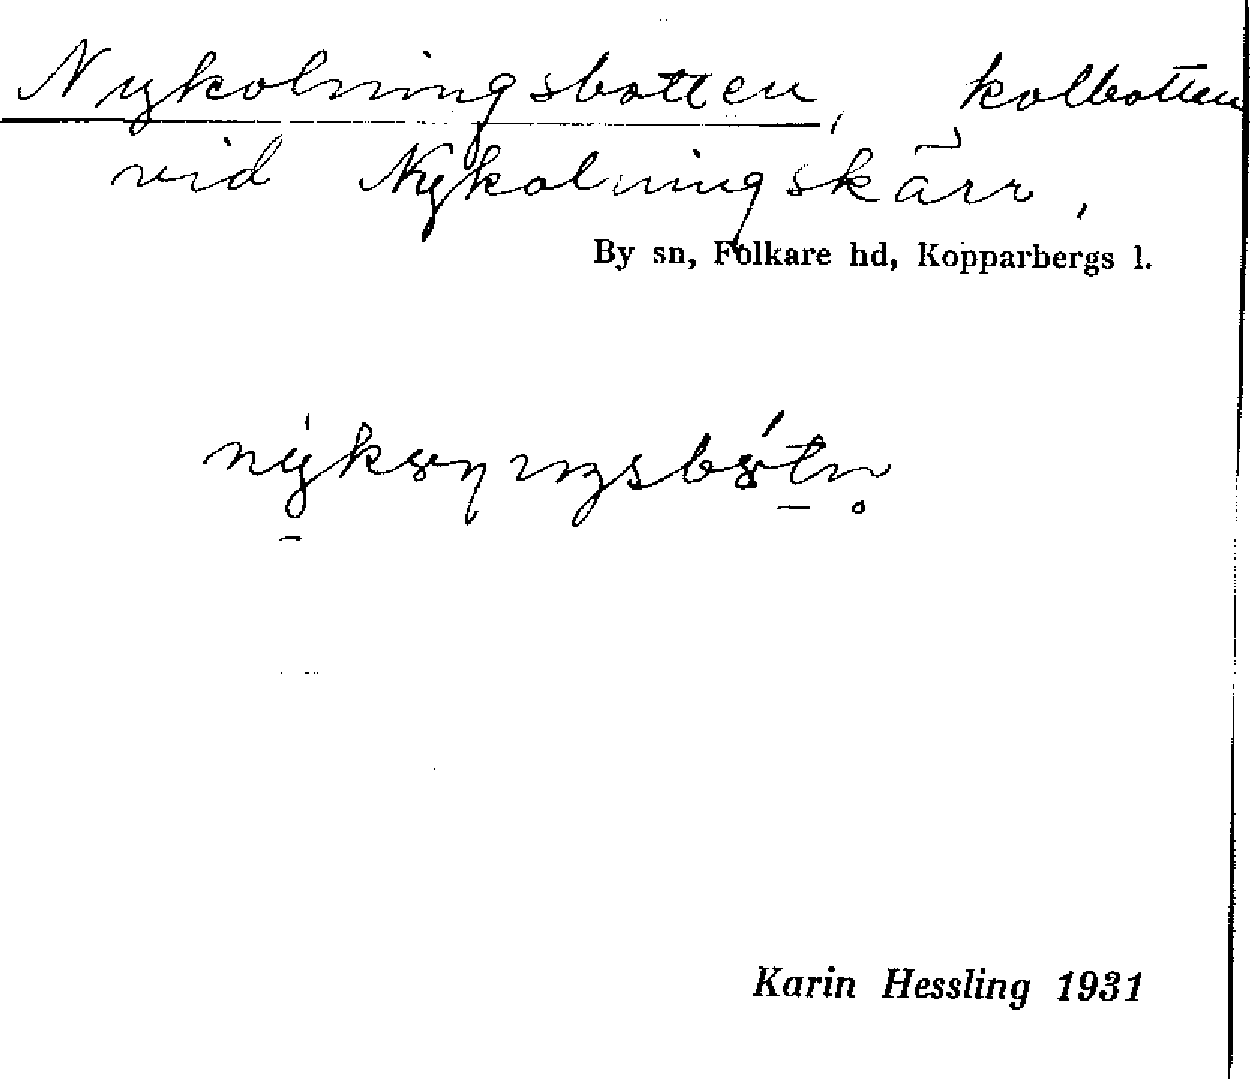 Nykolningsbotten, kolbotten
vid Nykolningskärr,
By sn, Folkare hd, Kopparbergs l.
Karin Hessling 1931